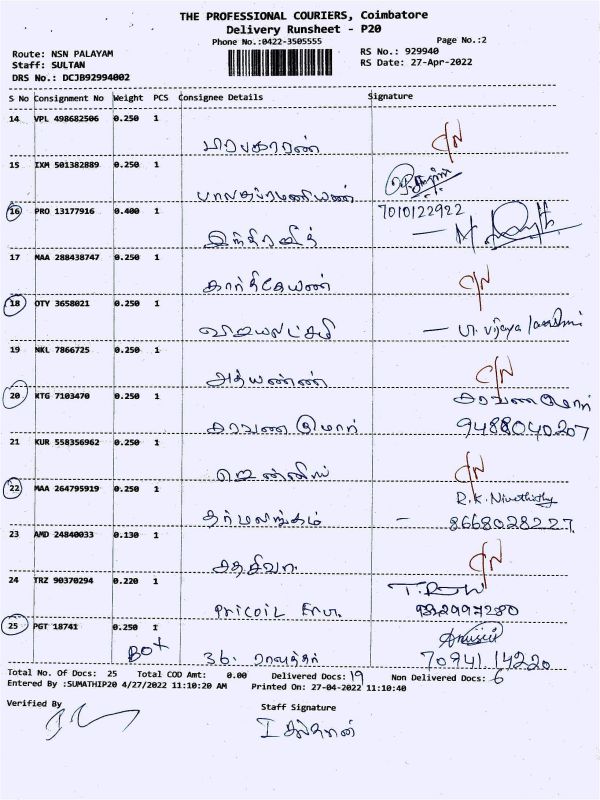 THE PROFESSIONAL COURIERS, Coimbatore
Delivery Runsheet - P20
Phone No.:0422-3505555
Page No.:2
Route: NSN PALAYAM
Staff: SULTAN
DRS No.: DCJB92994002
RS No.: 929940
RS Date: 27-Apr-2022
S No Consignment No Weight PCS Consignee Details Signature
14 VPL 498682506 0.250 1
பிரபாகரன் C/N
15 IXM 501382889 0.250 1
பாலசுப்ரமணியன்
16 PRO 13177916 0.400 1 7010122922
இந்திரஜித்
17 MAA 288438747 0.250 1
கார்த்திகேயன் C/N
18 OTY 3658021 0.250 1
விஜயலட்சுமி — M. Vijaya lakshmi
19 NKL 7866725 0.250 1
C/N
20 KTG 7103470 0.250 1
சரவணகுமார் சரவணகுமார்
9488040207
21 KUR 558356962 0.250 1
ஜென்னிஸ் C/N
22 MAA 264795919 0.250 1 R.K. Nivethithy
தர்மலிங்கம் - 8668028227
23 AMD 24840033 0.130 1
சதாசிவம் C/N
24 TRZ 90370294 0.220 1
Pricoil
25 PGT 18741 0.250 1
BOX 36. 70941 14220
Total No. Of Docs: 25 Total COD Amt: 0.00 Delivered Docs: 19 Non Delivered Docs: 6
Entered By :SUMATHIP20 4/27/2022 11:10:20 AM Printed On: 27-04-2022 11:10:40
Verified By Staff Signature